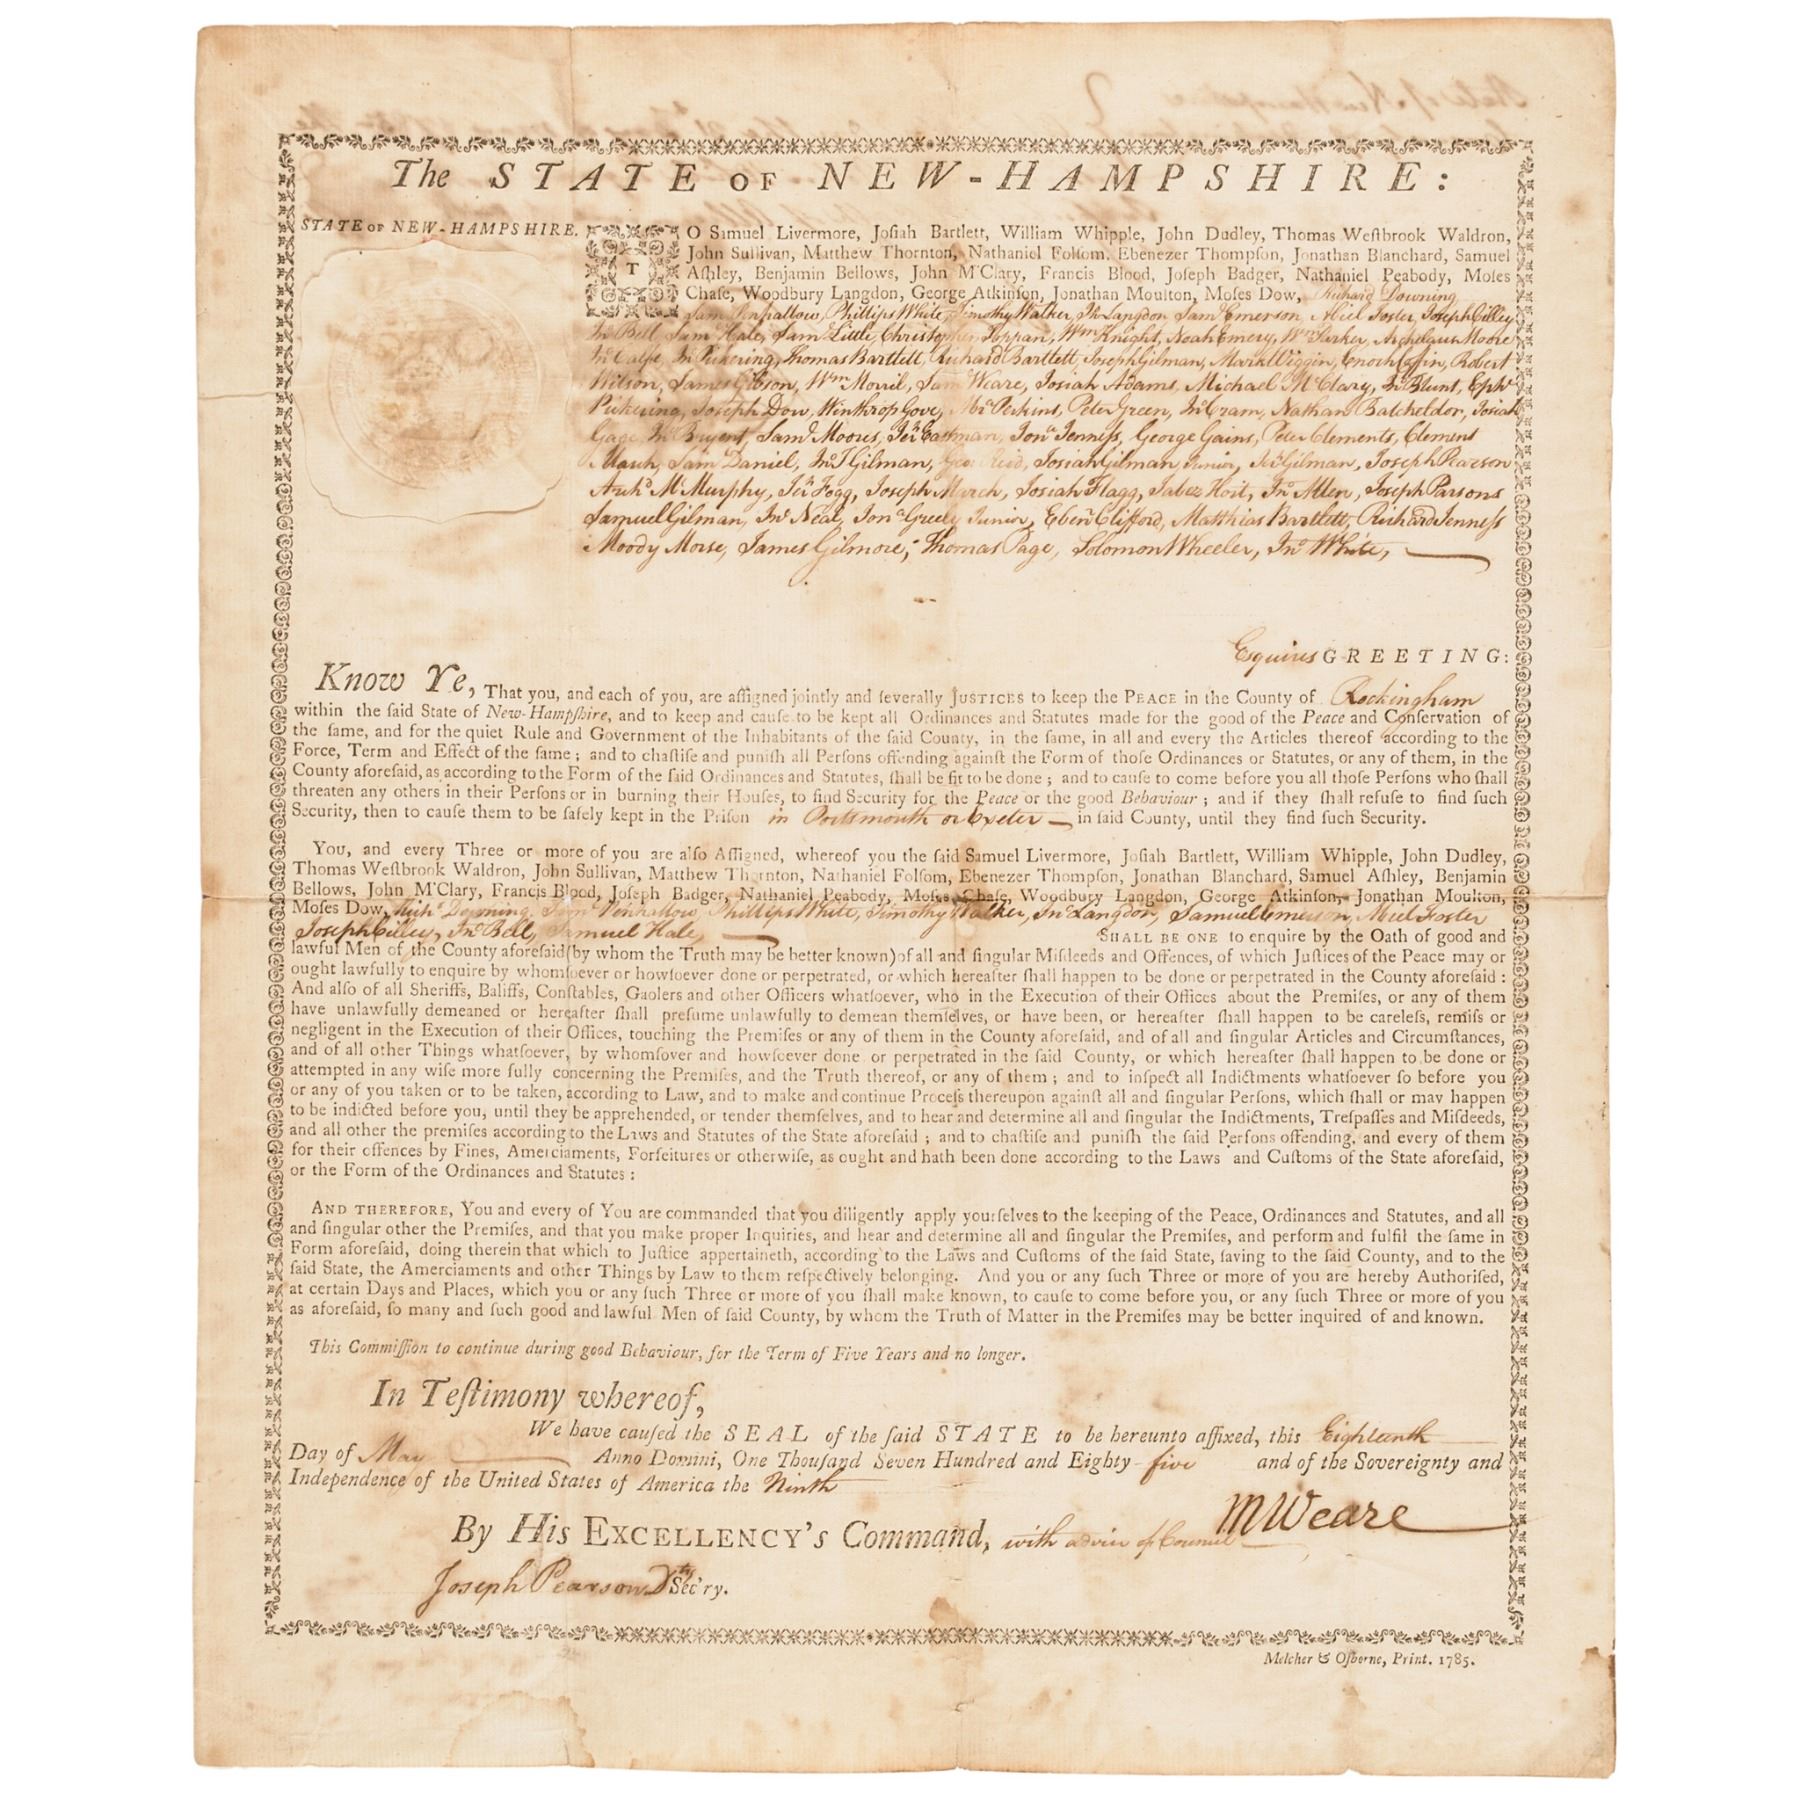 The STATE OF NEW-HAMPSHIRE:
STATE OF NEW-HAMPSHIRE.
TO Samuel Livermore, Joſiah Bartlett, William Whipple, John Dudley, Thomas Weſtbrook Waldron,
John Sullivan, Matthew Thornton, Nathaniel Folſom, Ebenezer Thompſon, Jonathan Blanchard, Samuel
Aſhley, Benjamin Bellows, John M'Clary, Francis Blood, Joſeph Badger, Nathaniel Peabody, Moſes
Chaſe, Woodbury Langdon, George Atkinſon, Jonathan Moulton, Moſes Dow, Richard Downing
Sam Penhallow, Phillips White, Timothy Walker, Jnº Langdon Samˡ Emerson, Abiel Foster, Joseph Cilley
Jnº Bell, Samˡ Hale, Sam Little, Christopher Toppan, Wm Knight, Noah Emery, Wm Parker, Archelaus Moore
Jnº Calfe, Jnº Pickering, Thomas Bartlett, Richard Bartlett, Joseph Gilman, Mark Wiggin, Enoch Coffin, Robert
Wilson, James Gibson, Wm Morril, Sam Weare, Josiah Adams, Michael McClary, Jnº Blunt, Ephm
Pickering, Joseph Dow, Winthrop Gove, Perkins, Peter Green, Jnº Cram, Nathan Batcheldor, Josiah
Gage, Jnº Bryent, Samˡ Moores, Jerʰ Eastman, Jonª Jenneſs, George Gains, Peter Clements, Clement
March, Sam Daniel, Jnº T Gilman, Geo Reid, Josiah Gilman Junior, Gilman, Joseph Pearson
Archᵈ McMurphy, Jerʰ Fogg, Joseph March, Josiah Flagg, Jabez Hoit, Jnº Allen, Joseph Parsons
Samuel Gilman, Jnº Neal, Jonª Greely Junior, Ebenʳ Clifford, Matthias Bartlett, Richard Jenneſs
Moody Morse, James Gilmore, Thomas Page, Solomon Wheeler, Jnº White,
Esquires GREETING:
Know Ye, That you, and each of you, are aſſigned jointly and ſeverally JUSTICES to keep the PEACE in the County of Rockingham
within the ſaid State of New-Hampſhire, and to keep and cauſe to be kept all Ordinances and Statutes made for the good of the Peace and Conſervation of
the ſame, and for the quiet Rule and Government of the Inhabitants of the ſaid County, in the ſame, in all and every the Articles thereof according to the
Force, Term and Effect of the ſame; and to chaſtiſe and puniſh all Perſons offending againſt the Form of thoſe Ordinances or Statutes, or any of them, in the
County aforeſaid, as according to the Form of the ſaid Ordinances and Statutes, ſhall be fit to be done; and to cauſe to come before you all thoſe Perſons who ſhall
threaten any others in their Perſons or in burning their Houſes, to find Security for the Peace or the good Behaviour; and if they ſhall refuſe to find ſuch
Security, then to cauſe them to be ſafely kept in the Priſon in Portsmouth or Exeter in ſaid County, until they find ſuch Security.
You, and every Three or more of you are alſo Aſſigned, whereof you the ſaid Samuel Livermore, Joſiah Bartlett, William Whipple, John Dudley,
Thomas Weſtbrook Waldron, John Sullivan, Matthew Thornton, Nathaniel Folſom, Ebenezer Thompſon, Jonathan Blanchard, Samuel Aſhley, Benjamin
Bellows, John M'Clary, Francis Blood, Joſeph Badger, Nathaniel Peabody, Moſes Chaſe, Woodbury Langdon, George Atkinſon, Jonathan Moulton,
Moſes Dow, Richᵈ Downing, Samˡ Penhallow, Phillips White, Timothy Walker, Jnº Langdon, Samuel Emerson, Abiel Foster
Joseph Cilley, Jnº Bell, Samuel Hale, SHALL BE ONE to enquire by the Oath of good and
lawful Men of the County aforeſaid (by whom the Truth may be better known) of all and ſingular Miſdeeds and Offences, of which Juſtices of the Peace may or
ought lawfully to enquire by whomſoever or howſoever done or perpetrated, or which hereafter ſhall happen to be done or perpetrated in the County aforeſaid:
And alſo of all Sheriffs, Baliffs, Conſtables, Gaolers and other Officers whatſoever, who in the Execution of their Offices about the Premiſes, or any of them
have unlawfully demeaned or hereafter ſhall preſume unlawfully to demean themſelves, or have been, or hereafter ſhall happen to be careleſs, remiſs or
negligent in the Execution of their Offices, touching the Premiſes or any of them in the County aforeſaid, and of all and ſingular Articles and Circumſtances,
and of all other Things whatſoever, by whomſover and howſoever done or perpetrated in the ſaid County, or which hereafter ſhall happen to be done or
attempted in any wiſe more fully concerning the Premiſes, and the Truth thereof, or any of them; and to inſpect all Indictments whatſoever ſo before you
or any of you taken or to be taken, according to Law, and to make and continue Proceſs thereupon againſt all and ſingular Perſons, which ſhall or may happen
to be indicted before you, until they be apprehended, or tender themſelves, and to hear and determine all and ſingular the Indictments, Treſpaſſes and Miſdeeds,
and all other the premiſes according to the Laws and Statutes of the State aforeſaid; and to chaſtiſe and puniſh the ſaid Perſons offending, and every of them
for their offences by Fines, Amerciaments, Forfeitures or otherwiſe, as ought and hath been done according to the Laws and Cuſtoms of the State aforeſaid,
or the Form of the Ordinances and Statutes:
AND THEREFORE, You and every of You are commanded that you diligently apply yourſelves to the keeping of the Peace, Ordinances and Statutes, and all
and ſingular other the Premiſes, and that you make proper Inquiries, and hear and determine all and ſingular the Premiſes, and perform and fulfil the ſame in
Form aforeſaid, doing therein that which to Juſtice appertaineth, according to the Laws and Cuſtoms of the ſaid State, ſaving to the ſaid County, and to the
ſaid State, the Amerciaments and other Things by Law to them reſpectively belonging. And you or any ſuch Three or more of you are hereby Authoriſed,
at certain Days and Places, which you or any ſuch Three or more of you ſhall make known, to cauſe to come before you, or any ſuch Three or more of you
as aforeſaid, ſo many and ſuch good and lawful Men of ſaid County, by whom the Truth of Matter in the Premiſes may be better inquired of and known.
This Commiſſion to continue during good Behaviour, for the Term of Five Years and no longer.
In Teſtimony whereof,
We have cauſed the SEAL of the ſaid STATE to be hereunto affixed, this Eighteenth
Day of May Anno Domini, One Thouſand Seven Hundred and Eighty-five and of the Sovereignty and
Independence of the United States of America the Ninth
MWeare
By His EXCELLENCY'S Command, with advice of Council
Joseph Pearson Dty Sec'ry.
Melcher & Oſborne, Print. 1785.